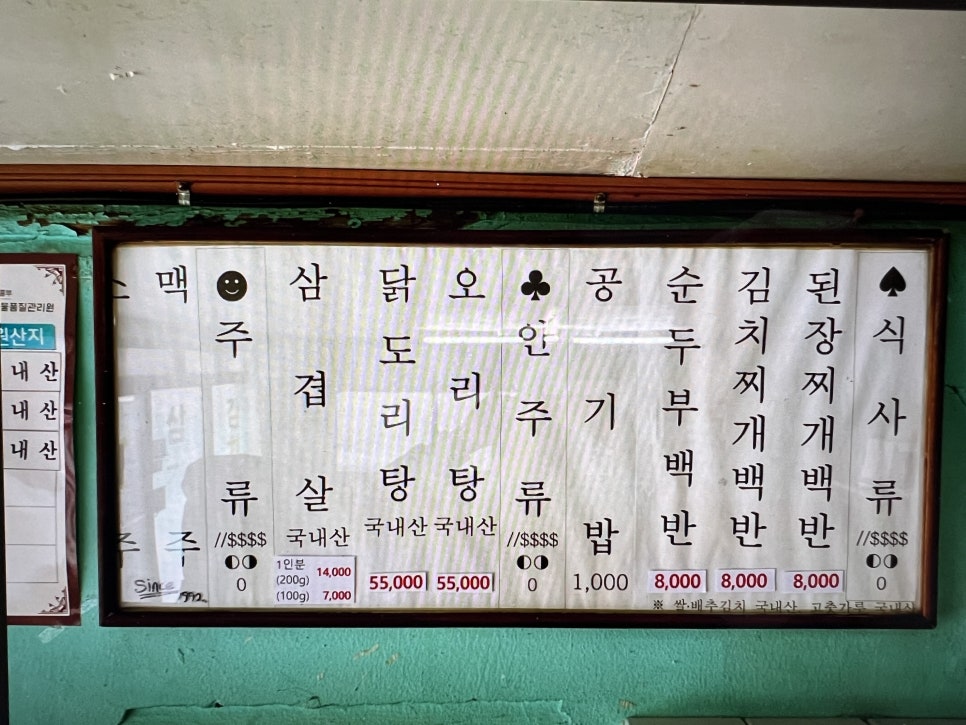 ♠식사류
//$$$$
◐◑
0
된장찌개백반
8,000
김치찌개백반
8,000
순두부백반
8,000
공기밥
1,000
♣안주류
//$$$$
◐◑
0
오리탕
국내산
55,000
닭도리탕
국내산
55,000
삼겹살
국내산
1인분
(200g) 14,000
(100g) 7,000
☻주류
//$$$$
◐◑
0
맥주
주
Since
※ 쌀·배추김치 국내산 고춧가루 국내산
물품질관리원
원산지
내 산
내 산
내 산